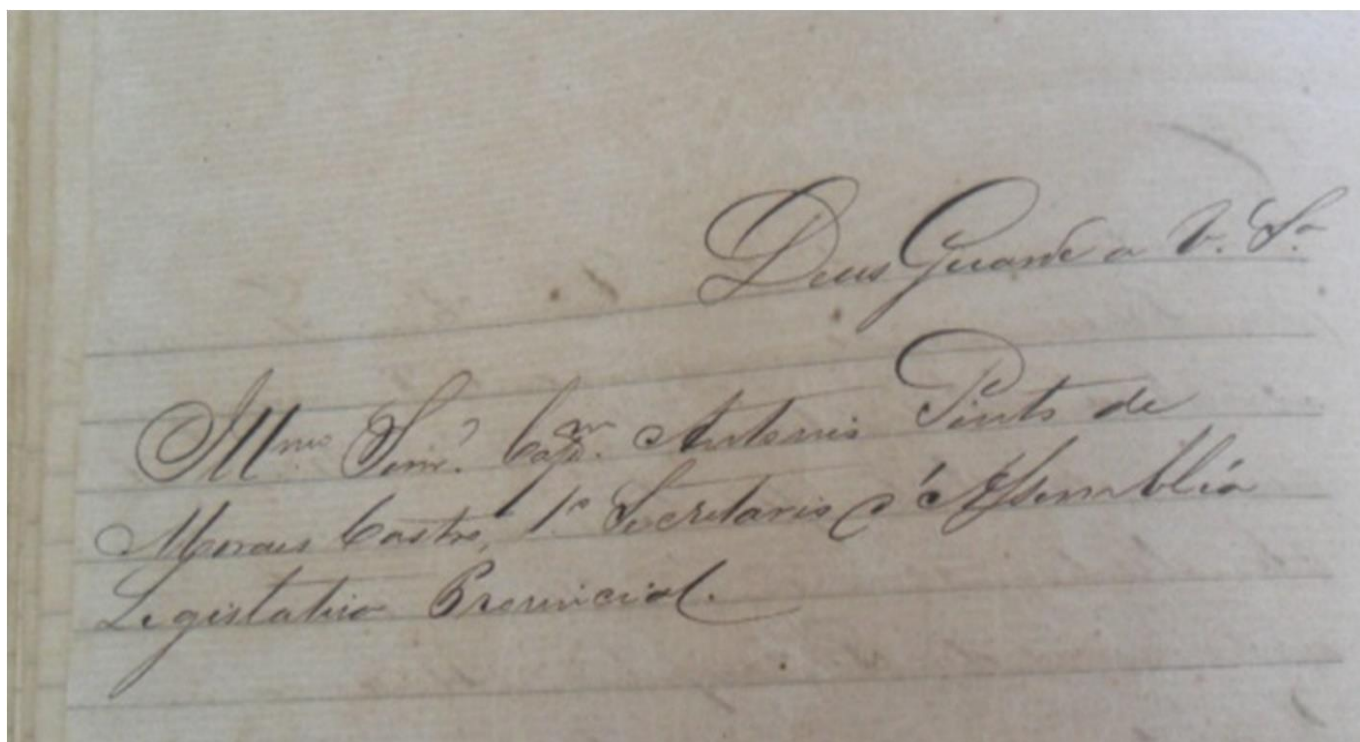 Deus Guarde a V. Sª
Illmo. Senr. Capm. Antonio Pinto de
Moraes Castro, 1º Secretario d'Assembléa
Legislativa Provincial.